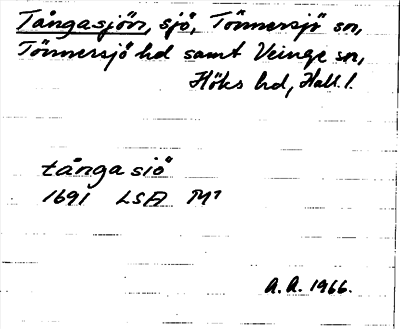 Tångasjön, sjö, Tönnersjö sn,
Tönnersjö hd samt Veinge sn,
Höks hd, Hall. l.
tånga siö
1691 LSA M1
A. A. 1966.